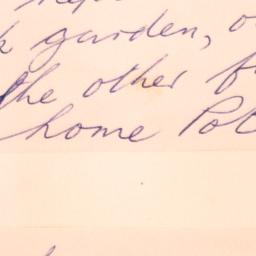 garden, o
the other f
home Pot